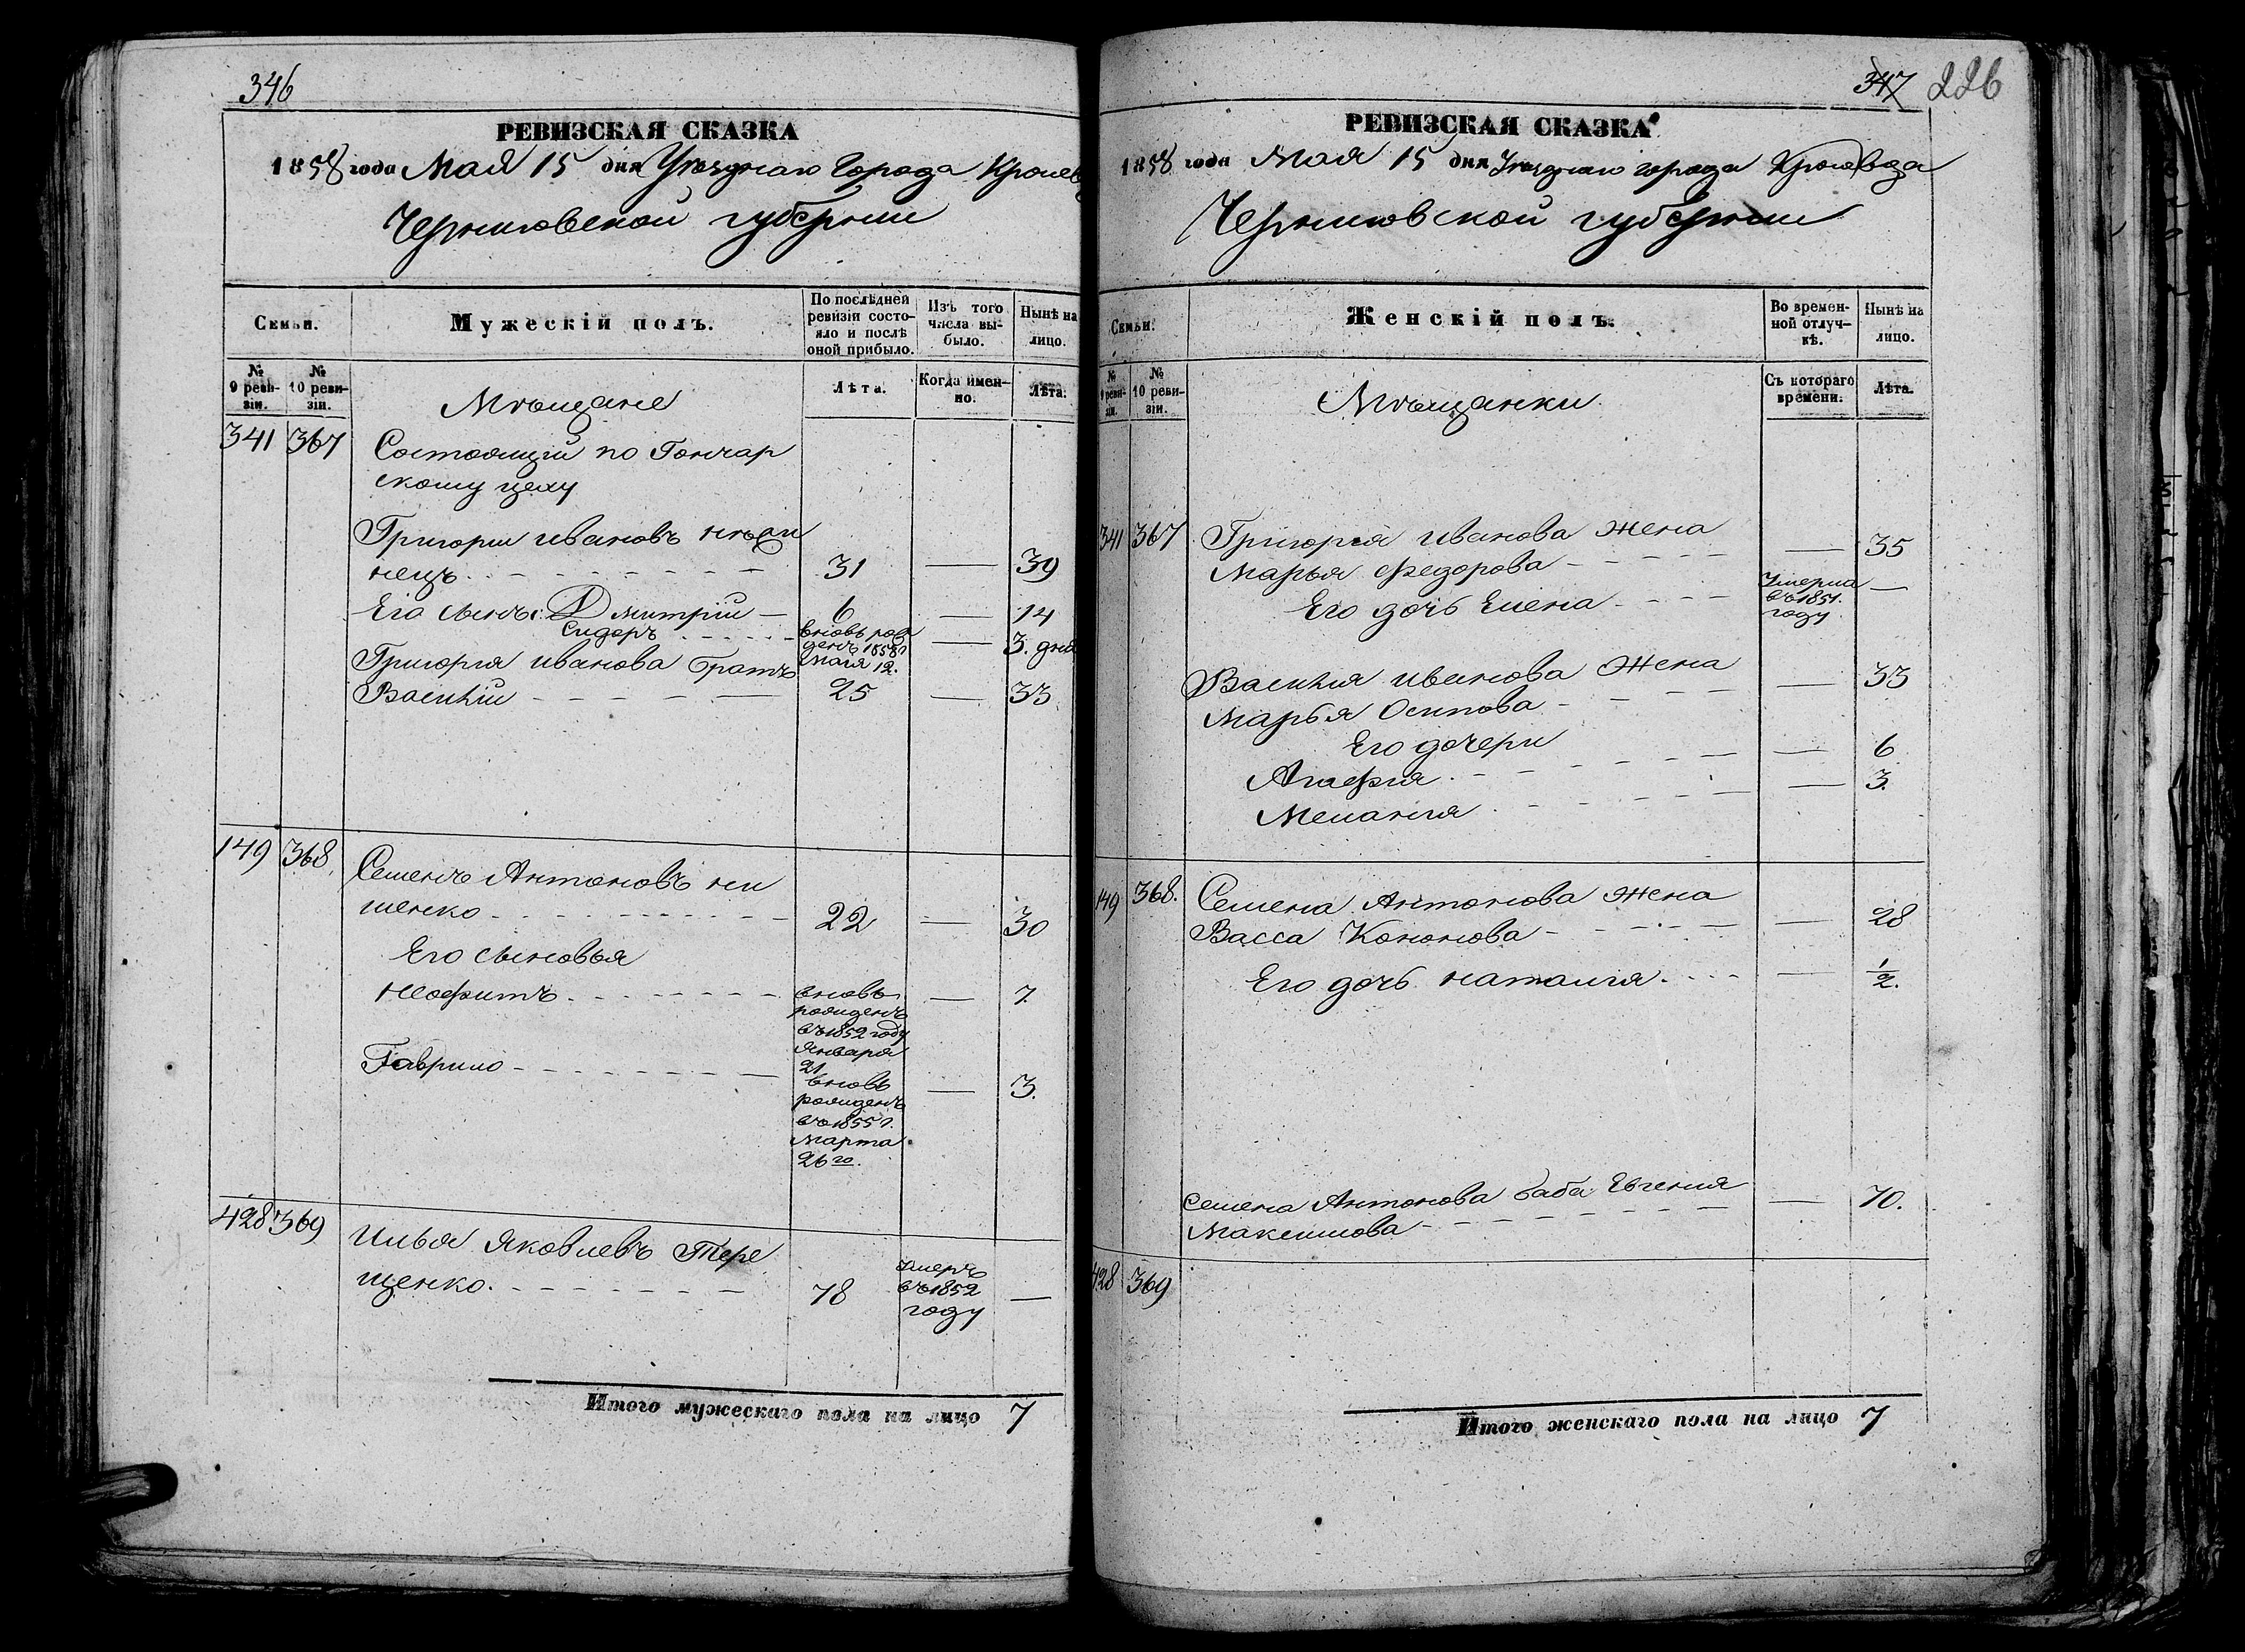 346
РЕВИЗСКАЯ СКАЗКА
1858 года Мая 15 дня Уѣзднаго города
Черниговской губерніи
Семьи.
Мужескій полъ.
По послѣдней ревизіи состояло и послѣ оной прибыло.
Изъ того числа выбыло.
Нынѣ на лицо.
№ 9 ревизіи.
№ 10 ревизіи.
Мѣщане
Лѣта.
Когда именно.
Лѣта.
341 367 Состоящій по Гончар
скому цеху
Григорій Ивановъ
нецъ 31 — 39
Его сынъ: Дмитрій — 6 — 14
Сидоръ вновь рож
денъ 1858 г. Мая 12. — 3. дня
Григорія Иванова братъ
Василій 25 — 33
149 368. Семенъ Антоновъ ни
шенко 22 — 30
Его сыновья
Неофитъ вновь рожденъ въ 1852 году Января 21 — 7.
Гаврило вновь рожденъ въ 1855 г. Марта 26го. — 3.
428 369 Илья Яковлевъ Тере
щенко. 78 умеръ въ 1852 году —
Итого мужескаго пола на лицо 7
347 226
РЕВИЗСКАЯ СКАЗКА
1858 года Мая 15 дня Уѣзднаго города Кролевца
Черниговской губерніи
Семьи.
Женскій полъ.
Во временной отлучкѣ.
Нынѣ на лицо.
№ 9 ревизіи.
№ 10 ревизіи.
Мѣщанки.
Съ котораго времени.
Лѣта.
341 367 Григорія Иванова жена
Марья Федорова — 35
Его дочь Елена умерла въ 1851. году —
Василія Иванова жена
Марья Осипова — 33
Его дочери
Агафія — 6
Меланія — 3.
149 368. Семена Антонова жена
Васса Кононова — 28
Его дочь наталія. — 1/2.
Семена Антонова баба Евгенія
Максимова — 70.
428 369
Итого женскаго пола на лицо 7